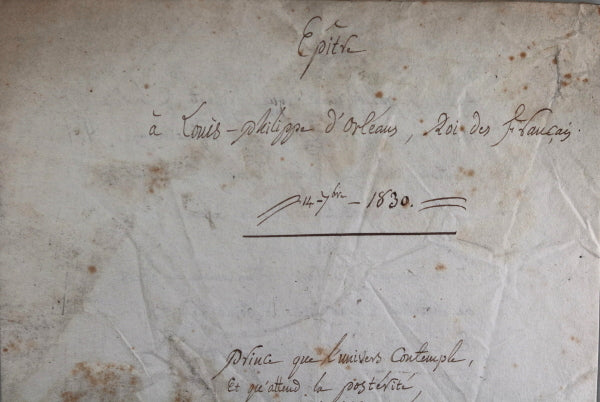 Epître
à Louis-philippe d'Orléans, Roi des français.
14 7bre - 1830.
Prince que l'univers Contemple,
Et qu'attend la postérité,